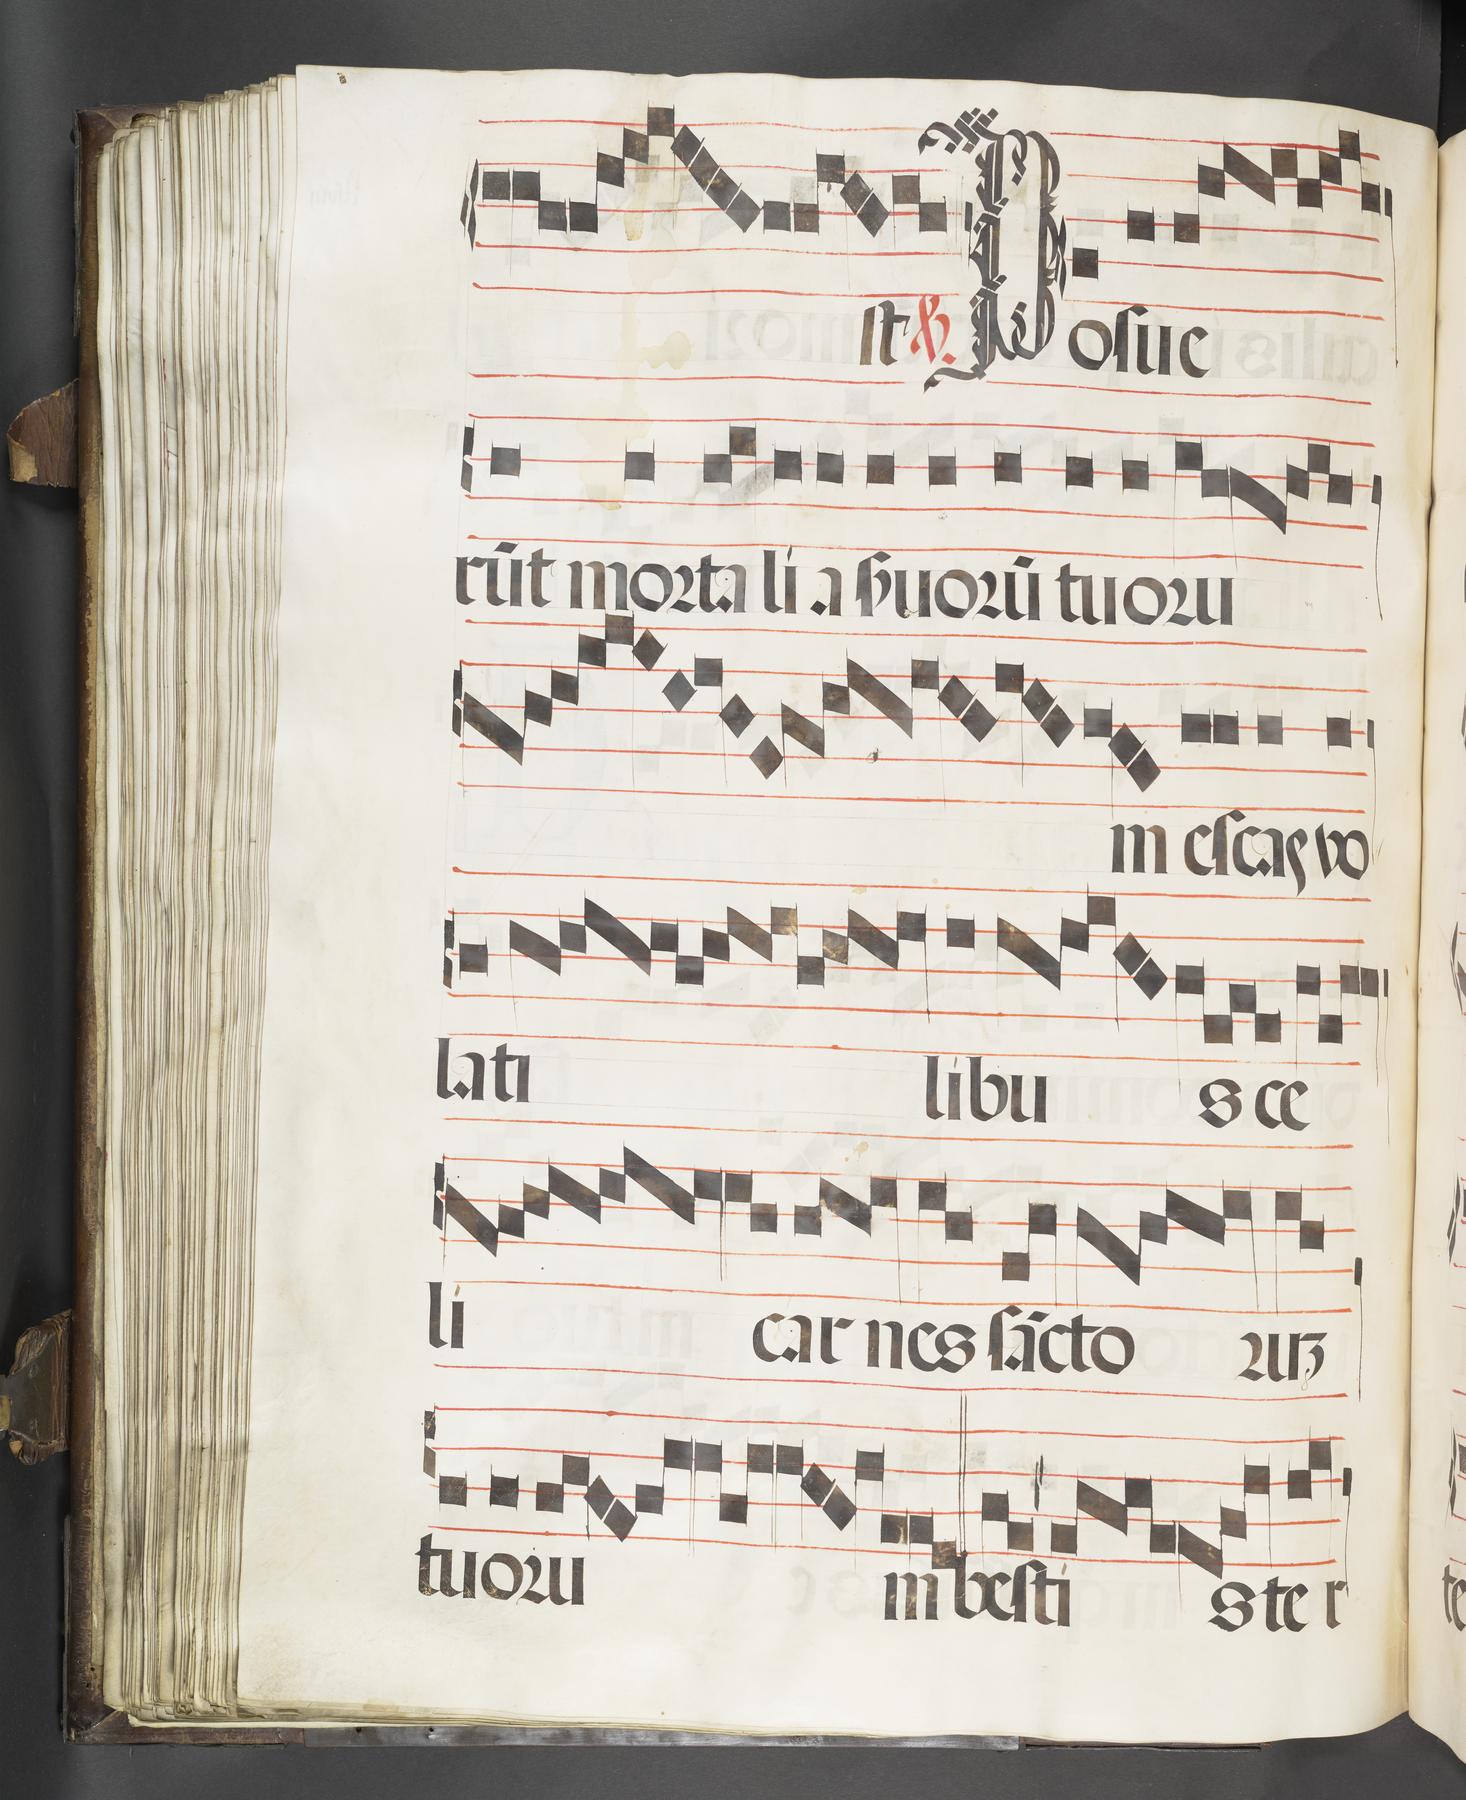 st ℟. Posue
rūt mortali a ẜuorū tuoru
m escas vo
lati libu s ce
li car nes sācto ruꝫ
tuoru m besti s ter